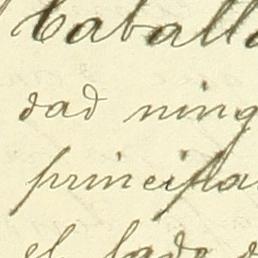 Caball
dad ning
principa
el lado d